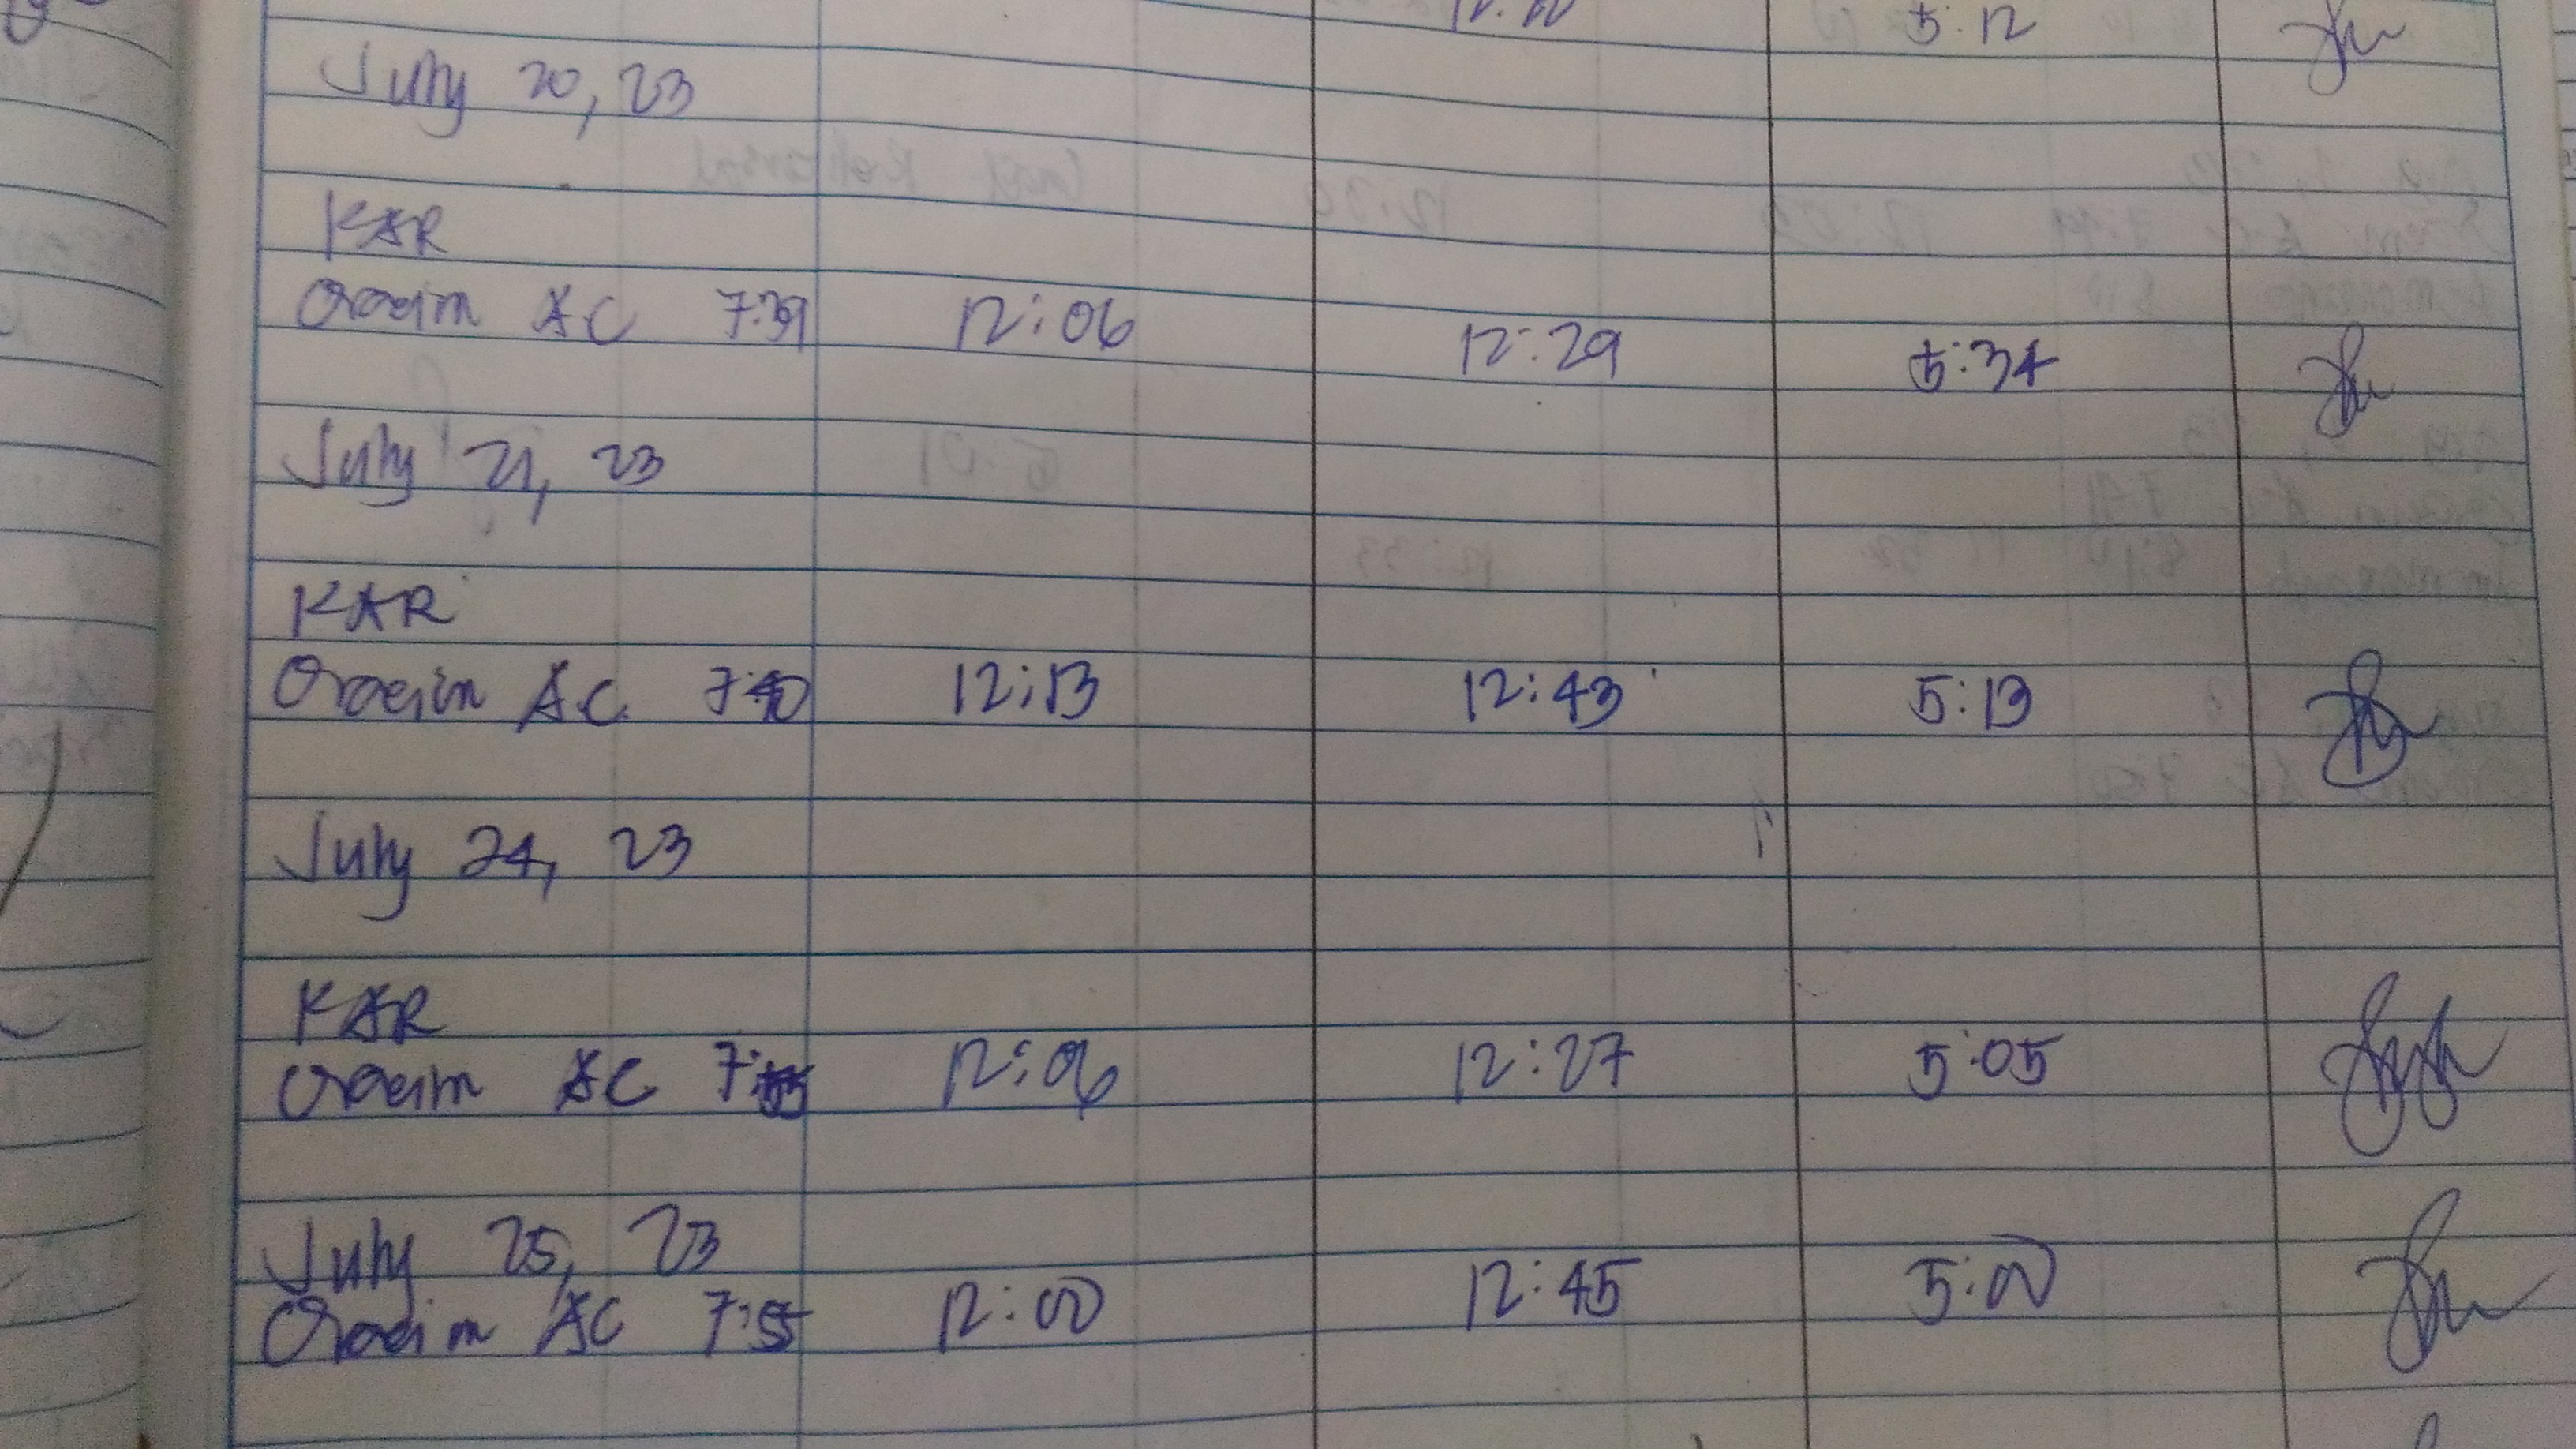 5:12
July 20, 23
KAR
Oracim AC 7:39 12:06 12:29 5:34
July 21, 23
KAR
Oracim A.C. 7:40 12:13 12:43 5:13
July 24, 23
KAR
Oracim AC 7:55 12:06 12:27 5:05
July 25, 23
Oracim AC 7:55 12:00 12:45 5:00